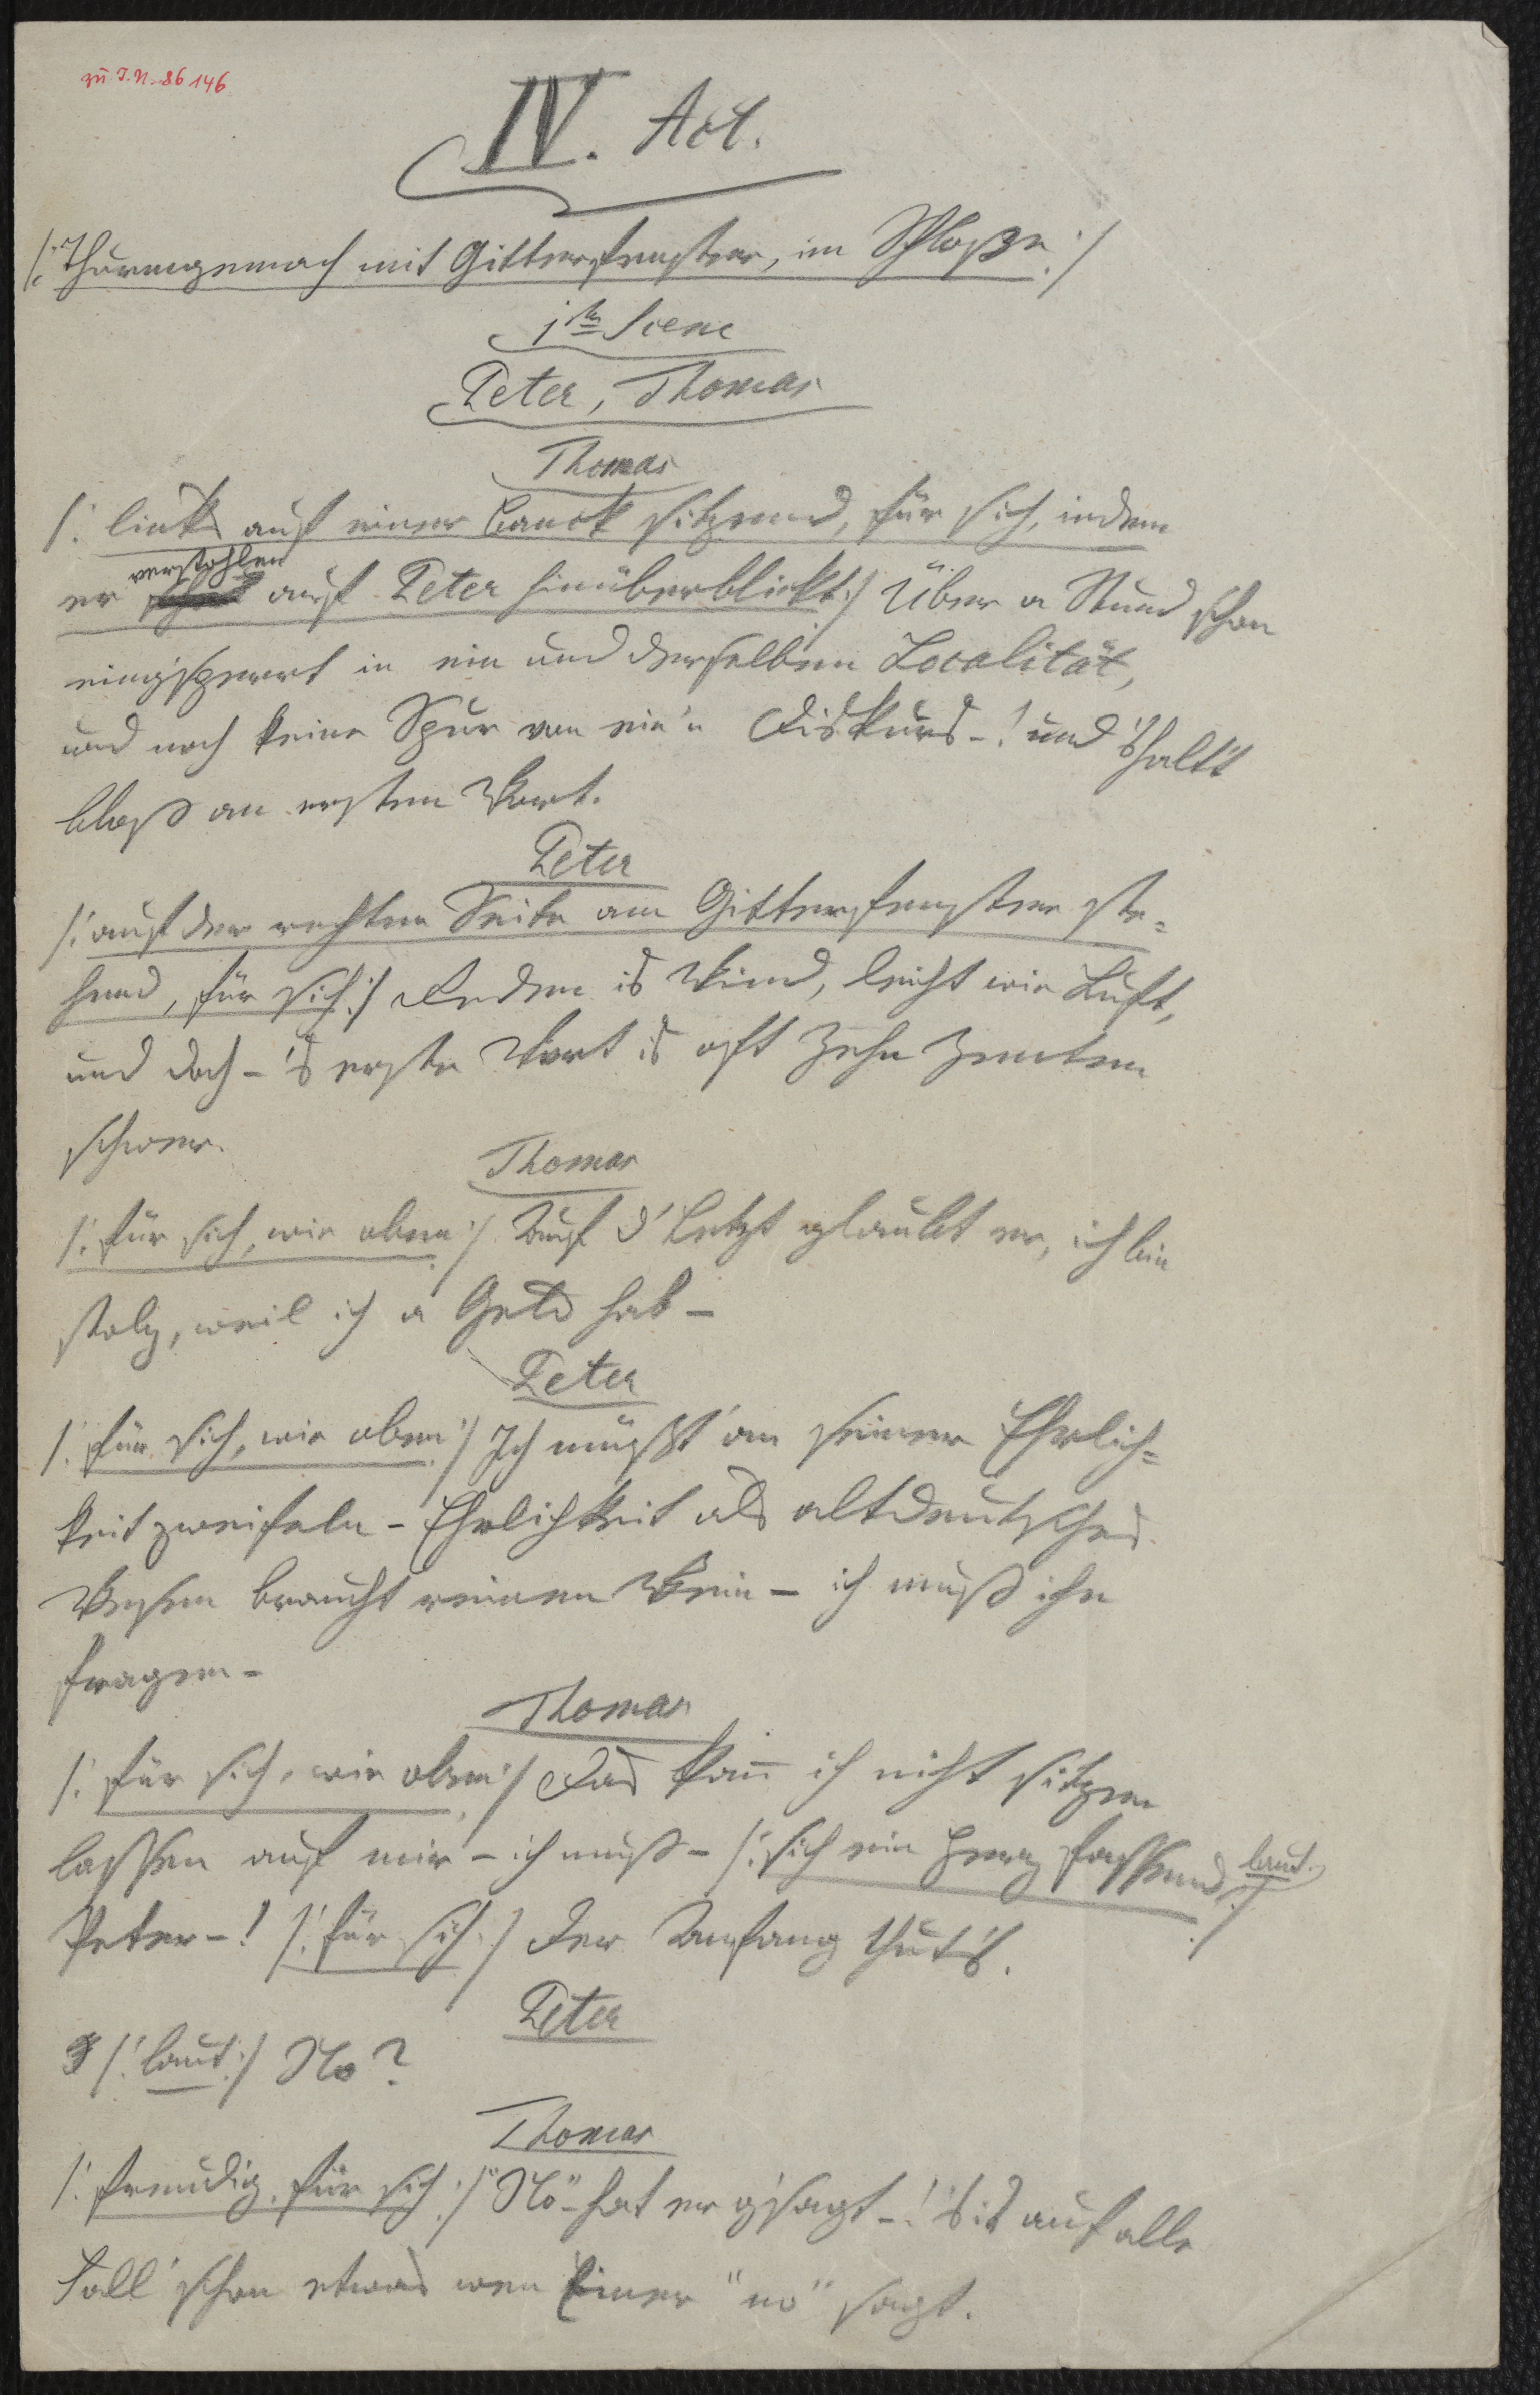 zu I.N. 86146
IV. Act.
/: Thurmgemach mit Gitterfenster, im Schloße :/
1te Scene
Peter, Thomas
Thomas
/: links auf einer Banck sitzend, für sich, indem
verstohlen
er auf Peter hinüberblickt :/ Über a Stund schon
eing'sperrt in ein und derselben Localität,
und noch keine Spur von ein'n Diskurs –! und 's halt't
bloß am ersten Wort.
Peter
/: auf der rechten Seite am Gitterfenster ste=
hend, für sich :/ Reden is Wind, leicht wie Luft,
und doch – 's erste Wort is oft zehn Zenten
schwer.
Thomas
/: für sich, wie oben :/ Auf d' Letzt glaubt er, ich bin
stolz, weil ich a Geld hab –
Peter
/: für sich, wie oben :/ Ich müßt' an seiner Ehrlich=
keit zweifeln – Ehrlichkeit als altdeutsches
Wesen braucht reinen Wein – ich muß ihn
fragen –
Thomas
/: für sich, wie oben :/ Das kan̄ ich nicht sitzen
lassen auf mir – ich muß – /: sich ein Herz fassend, laut :/
Peter –! /: für sich :/ Der Anfang thut's.
Peter
/: laut :/ No?
Thomas
/: freudig, für sich :/ "No" hat er g'sagt –! 's is auf alle
Fäll' schon etwas wen Einer "no" sagt.